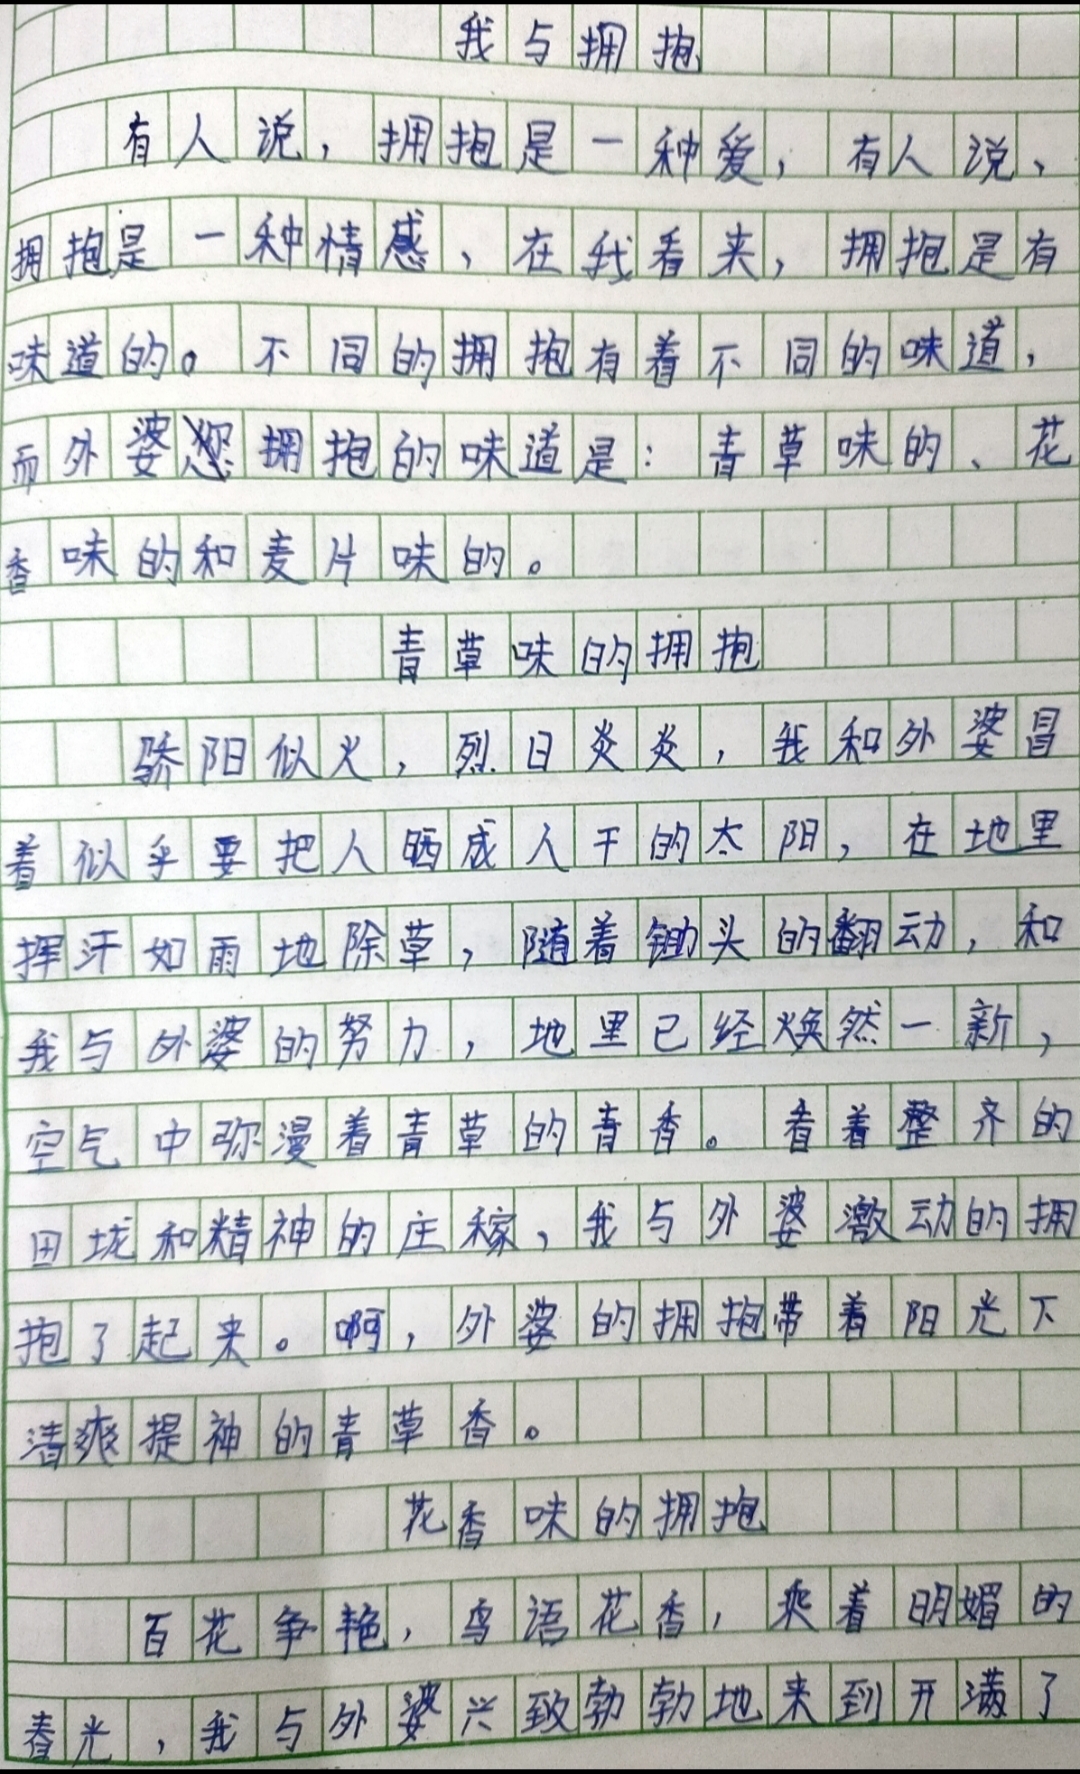 我与拥抱
有人说，拥抱是一种爱，有人说，
拥抱是一种情感，在我看来，拥抱是有
味道的。不同的拥抱有着不同的味道，
而外婆拥抱的味道是：青草味的、花
香味的和麦片味的。
青草味的拥抱
骄阳似火，烈日炎炎，我和外婆冒
着似乎要把人晒成人干的太阳，在地里
挥汗如雨地除草，随着锄头的翻动，和
我与外婆的努力，地里已经焕然一新，
空气中弥漫着青草的青香。看着整齐的
田垅和精神的庄稼，我与外婆激动的拥
抱了起来。啊，外婆的拥抱带着阳光下
清爽提神的青草香。
花香味的拥抱
百花争艳，鸟语花香，乘着明媚的
春光，我与外婆兴致勃勃地来到开满了